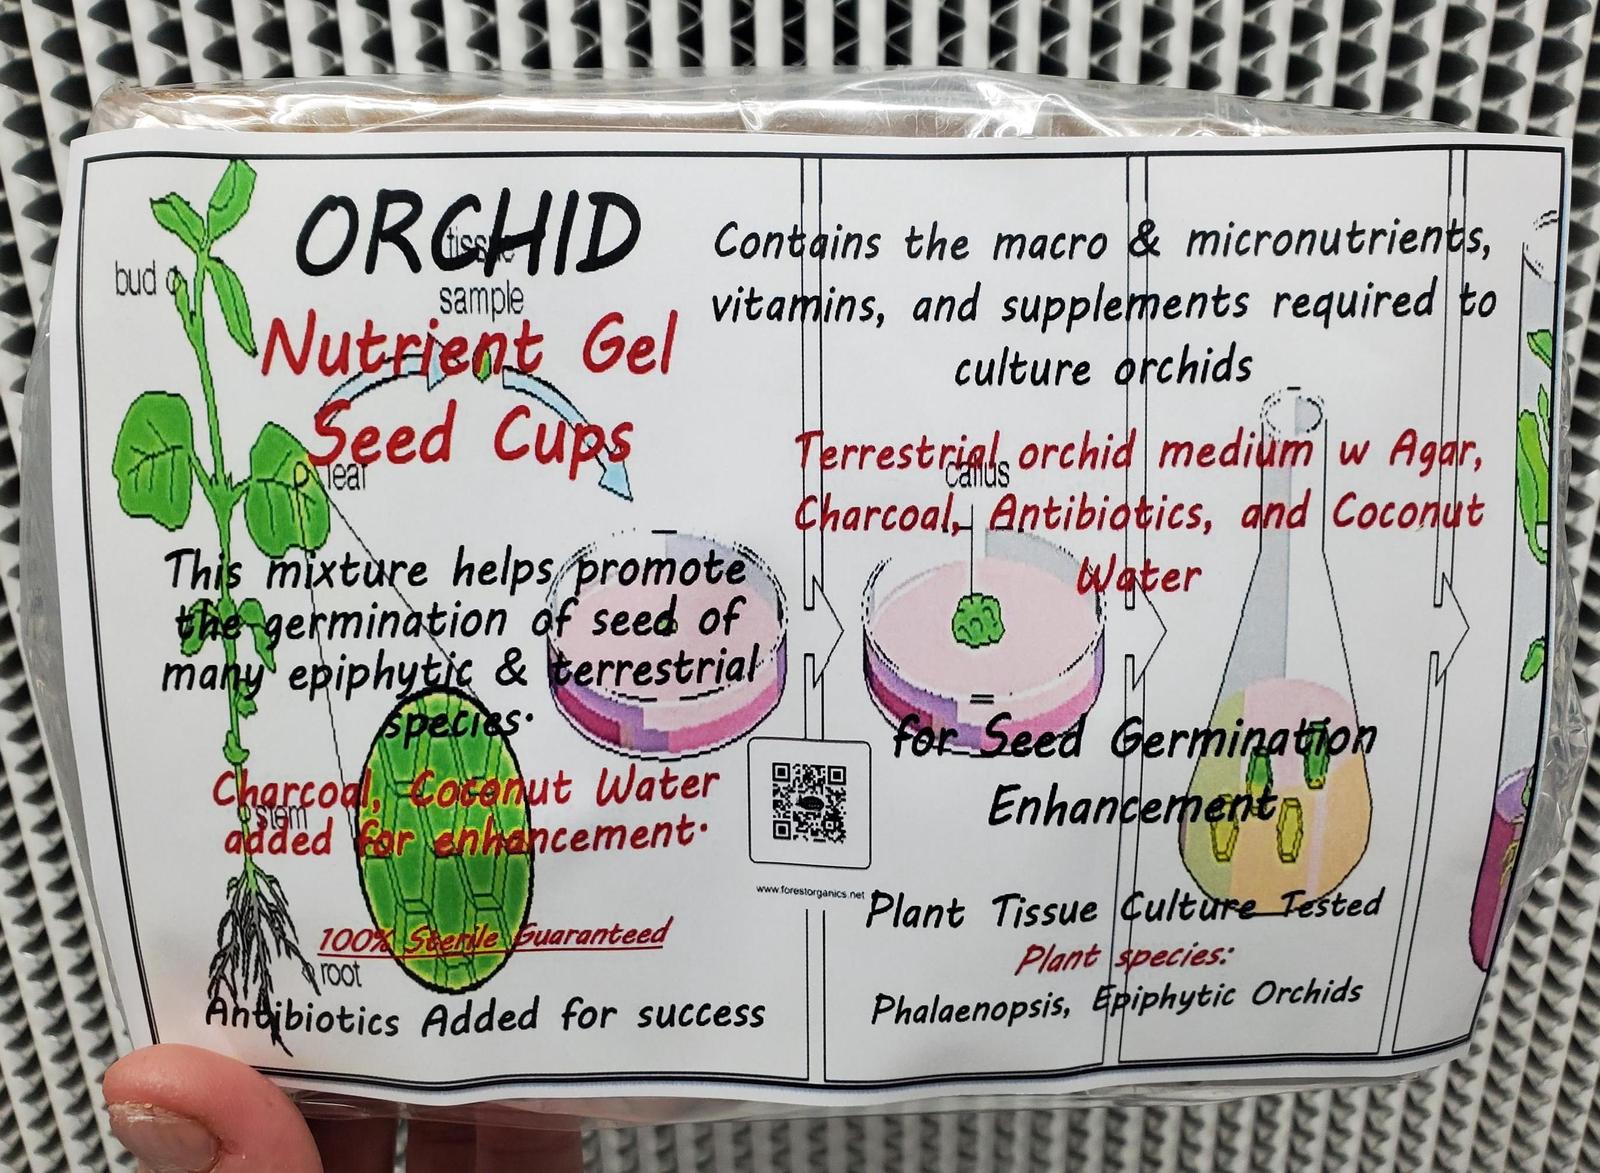 ORCHID
Nutrient Gel
Seed Cups
tissue
sample
bud
leaf
This mixture helps promote
the germination of seed of
many epiphytic & terrestrial
species.
Charcoal, Coconut Water
added for enhancement.
stem
100% Sterile Guaranteed
root
Antibiotics Added for success
Contains the macro & micronutrients,
vitamins, and supplements required to
culture orchids
Terrestrial orchid medium w Agar,
callus
Charcoal, Antibiotics, and Coconut
Water
for Seed Germination
Enhancement
www.forestorganics.net
Plant Tissue Culture Tested
Plant species:
Phalaenopsis, Epiphytic Orchids